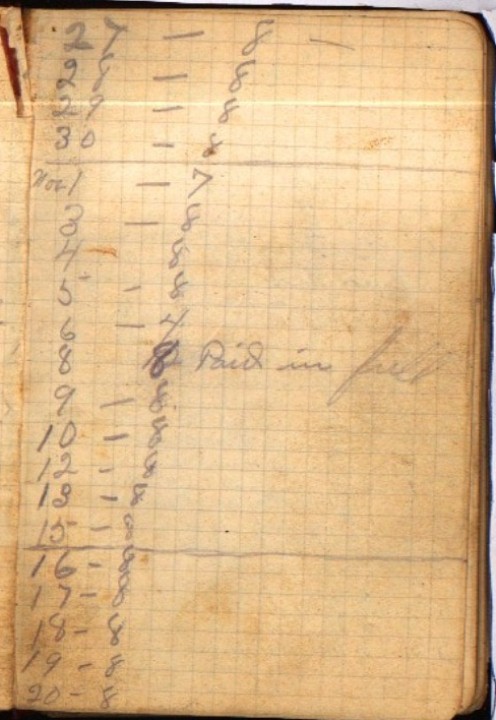 27 — 8 —
28 — 8
29 — 8
30 - 8
Nov 1 — 7
3 — 8
4 8
5 - 8
6 — 4
8 8 Paid in full
9 — 8
10 — 8
12 - 8
13 - 8
15 - 8
16 - 8
17 - 8
18 - 8
19 - 8
20 - 8